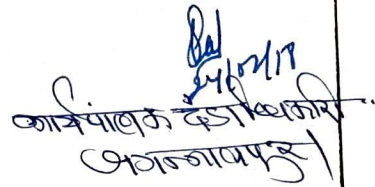 24/02/18
कार्यपालक दंडाधिकारी
जगन्नाथपुर।